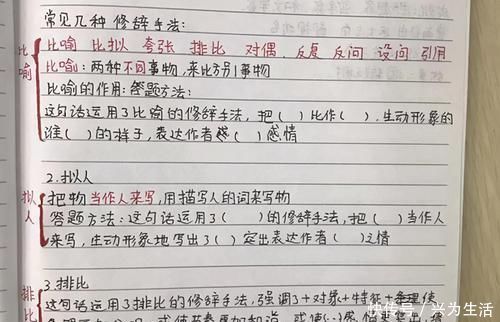 常见几种修辞手法:
比喻 比喻 比拟 夸张 排比 对偶、反复 反问 设问 引用
比喻:两种不同事物,来比方别1事物
比喻的作用:答题方法:
这句话运用了比喻的修辞手法,把( )比作( ),生动形象的
( )的样子,表达作者 ( )感情
2.拟人
拟人 把物当作人来写,用描写人的词来写物
答题方法:这句话运用了( )的修辞手法,把( )当作人
来写,生动形象地写出了( )突出表达作者( )之情
3.排比
排比 这句话运用了排比的修辞手法,强调了+对象+特征+
快传号/兴为生活